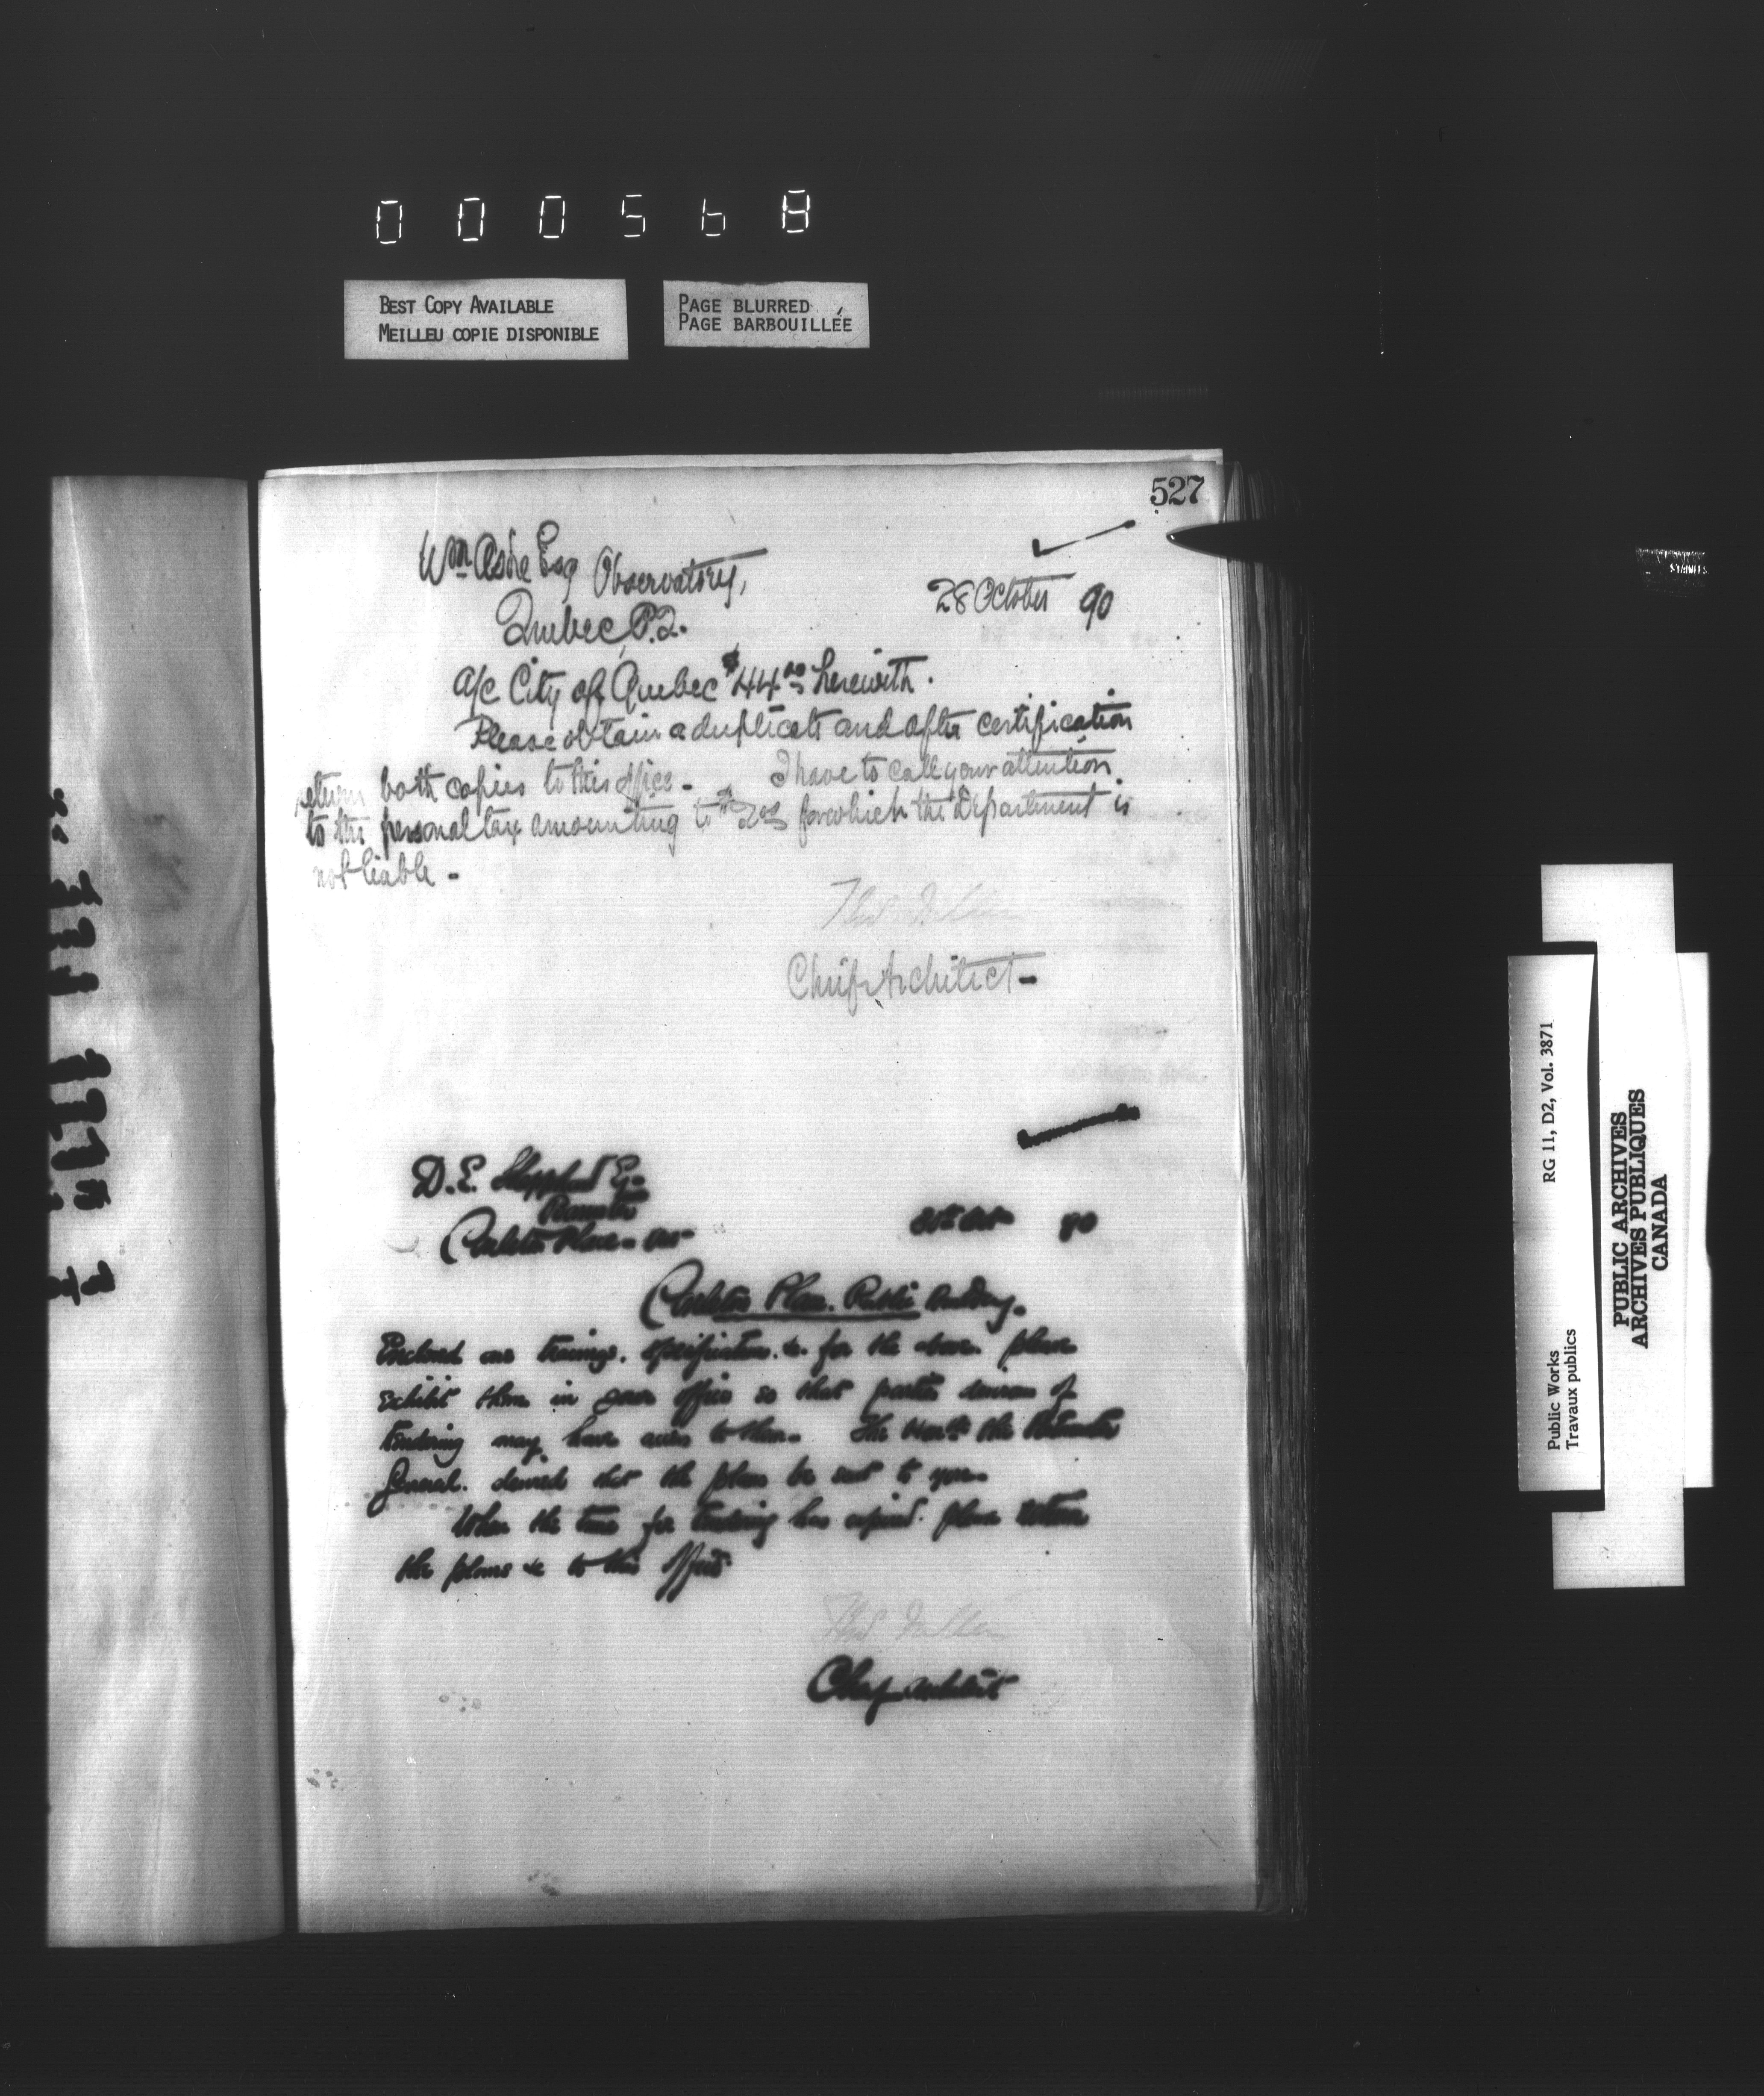 000568
BEST COPY AVAILABLE
MEILLEU COPIE DISPONIBLE
PAGE BLURRED
PAGE BARBOUILLÉE
527
Wm Ashe Esq Observatory,
Quebec, P.Q.
28 October 90
a/c City of Quebec $44.00 herewith.
Please obtain a duplicate and after certification
return both copies to this office - I have to call your attention
to the personal tax amounting to for which the Department is
not liable -
Chief Architect -
D.E. Sheppard Esq
Carleton Place - Ont
Oct 90
Carleton Place. Public Building.
Enclosed are tracings. specification. &c. for the above. please
exhibit them in your office so that parties desirous of
tendering may have access to them. The Honble the Postmaster
General. desired that the plans be sent to you.
When the time for tendering has expired. please return
the plans &c to this office
Chief Architect
RG 11, D2, Vol. 3871
Public Works
Travaux publics
PUBLIC ARCHIVES
ARCHIVES PUBLIQUES
CANADA